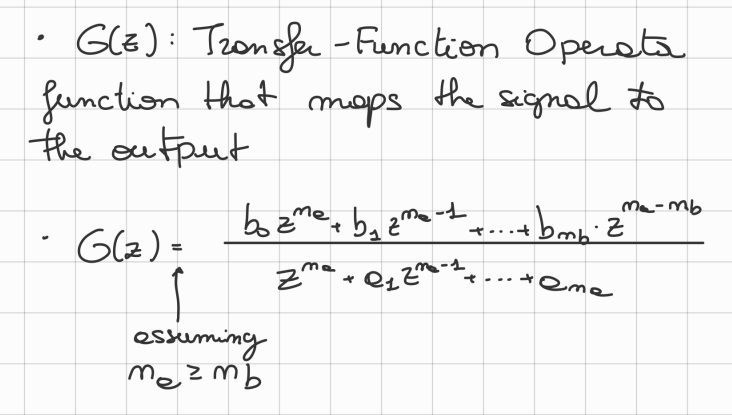 • G(z): Transfer-Function Operator
function that maps the signal to
the output
• G(z) = \frac{b_0 z^{n_a} + b_1 z^{n_a-1} + .... + b_{n_b} · z^{n_a-n_b}}{z^{n_a} + a_1 z^{n_a-1} + .... + a_{n_a}}
↑
assuming
n_a ≥ n_b